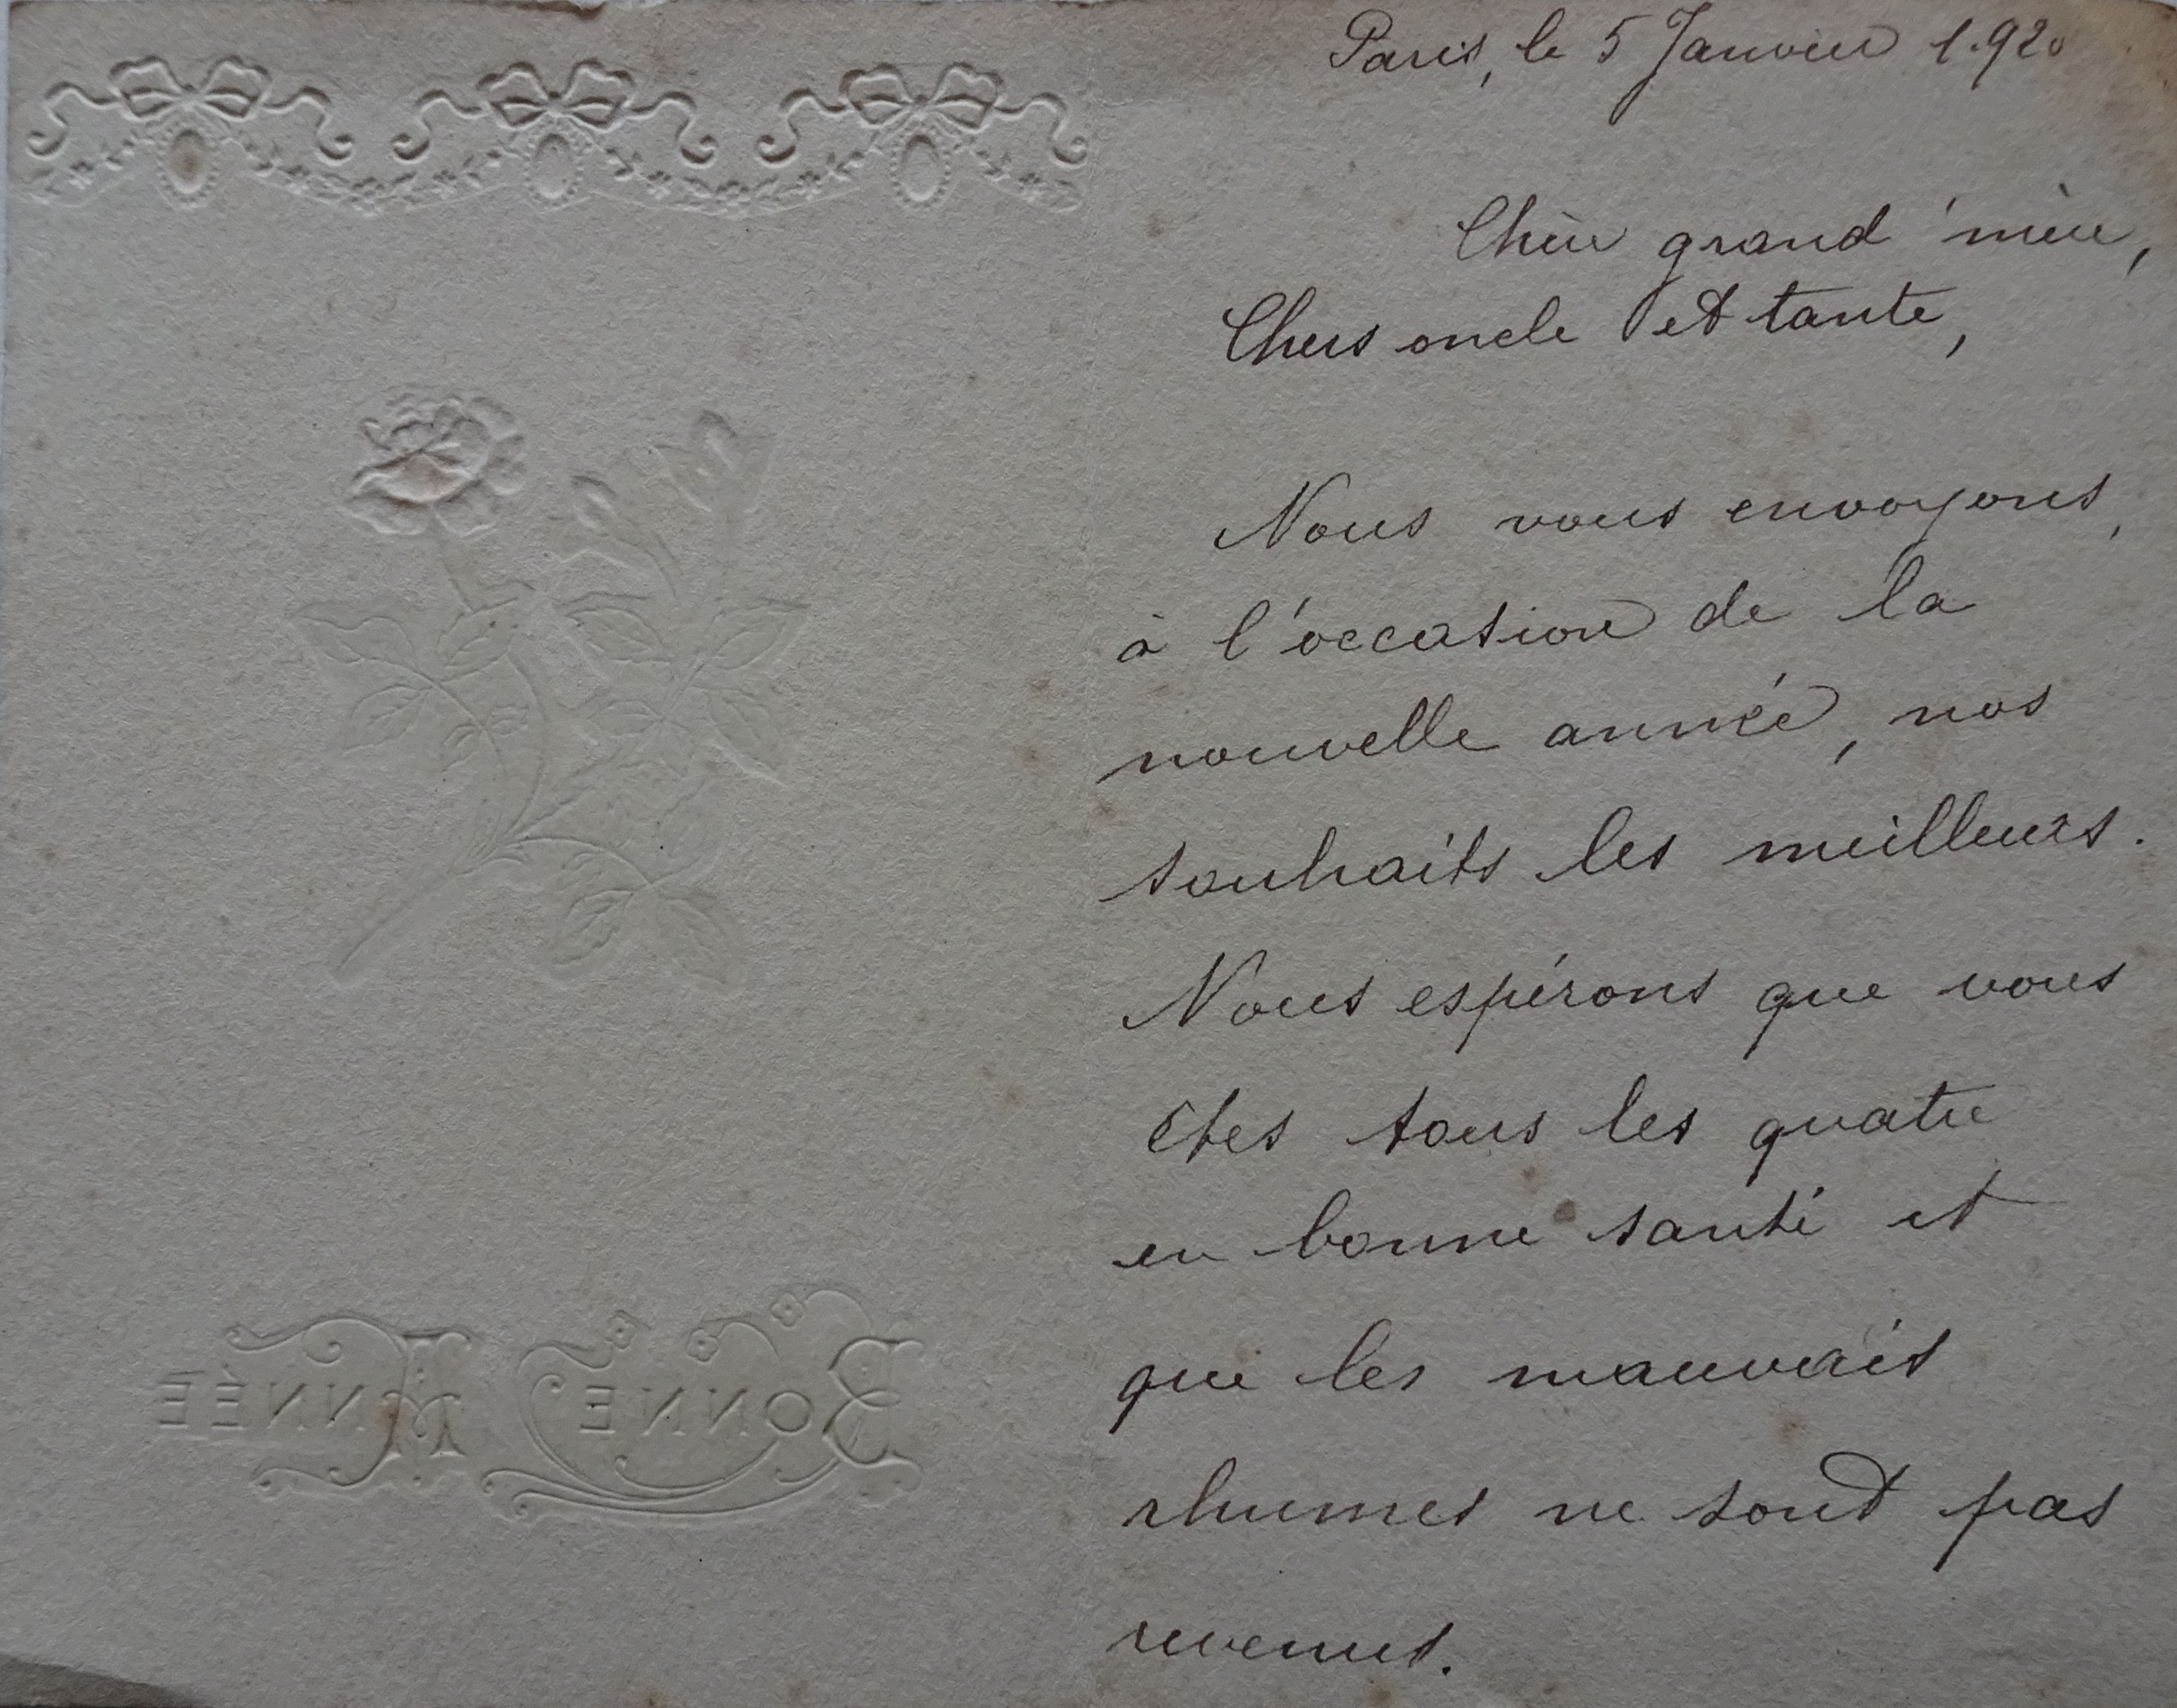 BONNE ANNÉE
Paris, le 5 Janvier 1.920
Chère grand'mère,
Chers oncle et tante,
Nous vous envoyons,
à l'occasion de la
nouvelle année, nos
souhaits les meilleurs.
Nous espérons que vous
êtes tous les quatre
en bonne santé et
que les mauvais
rhumes ne sont pas
revenus.